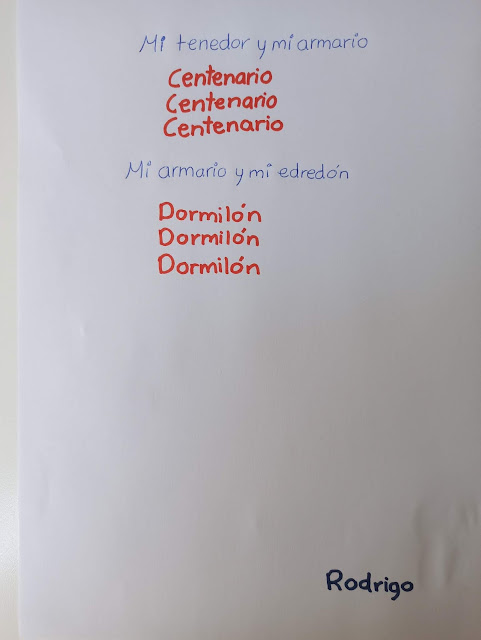 Mi tenedor y mi armario
Centenario
Centenario
Centenario
Mi armario y mi edredón
Dormilón
Dormilón
Dormilón
Rodrigo